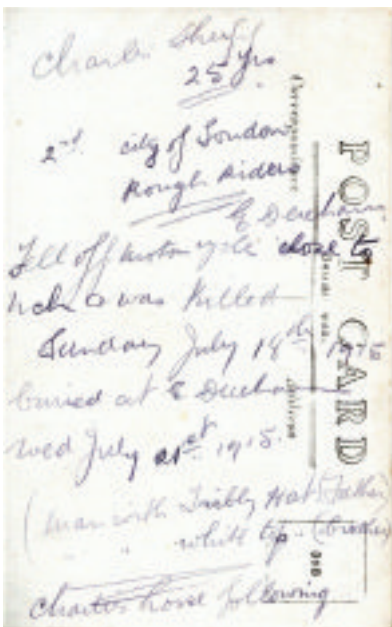 Charles
25 yrs
2nd city of London
Rough Riders
E Dereham
Fell off motor cycle close to
& was killed
Sunday July 18th 1915
buried at E Dereham
Wed July 21st 1915.
(man with Trilby Hat (Father)
" " white (brother)
Charles horse following
POST CARD
Correspondence